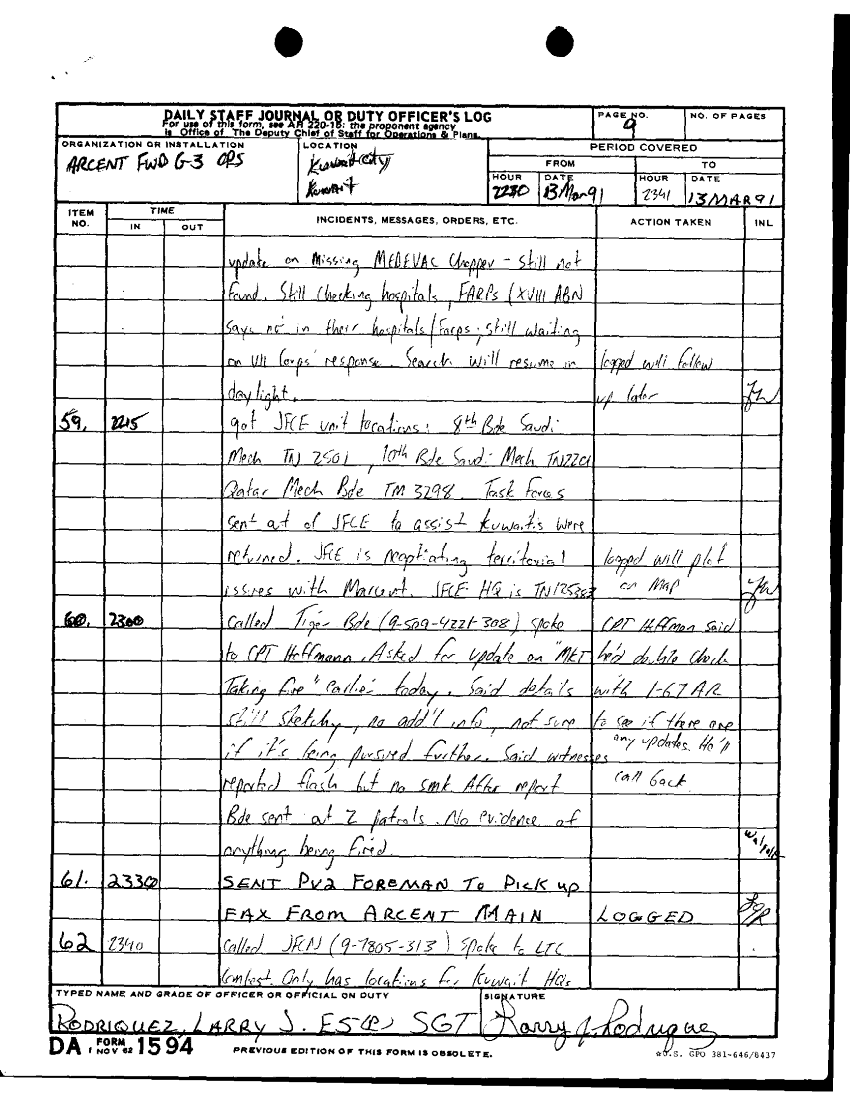 DAILY STAFF JOURNAL OR DUTY OFFICER'S LOG
For use of this form, see AR 220-15; the proponent agency
is Office of The Deputy Chief of Staff for Operations & Plans.
PAGE NO.
9
NO. OF PAGES
ORGANIZATION OR INSTALLATION
ARCENT FWD G-3 OPS
LOCATION
Kuwait City
Kuwait
PERIOD COVERED
FROM
TO
HOUR
2230
DATE
13 Mar 91
HOUR
2341
DATE
13 MAR 91
ITEM NO.
TIME
IN
OUT
INCIDENTS, MESSAGES, ORDERS, ETC.
ACTION TAKEN
INL
update on Missing MEDEVAC Chopper - still not
found. Still checking hospitals, FARPs (XVIII ABN
says not in their hospitals/Farps; still waiting
on VII Corps' response. Search will resume in
logged will follow
daylight.
up later
59. 2215 got JFCE unit locations: 8th Bde Saudi
Mech TN 2501, 10th Bde Saudi Mech TN2201
Qatar Mech Bde TM 3298. Task Forces
sent out of JFCE to assist Kuwaitis were
returned. JFCE is negotiating territorial
logged will plot
issues with Marcent. JFCE HQ is
on MAP
60. 2300 Called Tiger Bde (9-509-422 308) spoke
CPT Hoffman said
to CPT Hoffmann. Asked for update on "MKT
he'd double check
Taking fire" earlier today. Said details
with 1-67 AR
still sketchy, no add'l info, not sure
to see if there are
if it's being pursued further. Said witnesses
any updates. He'll
reported flash but no smk. After report
call back.
Bde sent out 2 patrols. No evidence of
anything being fired.
61. 2330 SENT PV2 FOREMAN TO PICK UP
FAX FROM ARCENT MAIN
LOGGED
62 2340 Called JFCN (9-7805-313) spoke to LTC
Only has locations for Kuwait HQs
TYPED NAME AND GRADE OF OFFICER OR OFFICIAL ON DUTY
RODRIQUEZ, LARRY J. E5(P) SGT
SIGNATURE
Larry J. Rodriquez
DA FORM 1594
1 NOV 62
PREVIOUS EDITION OF THIS FORM IS OBSOLETE.
U.S. GPO 381-646/8437